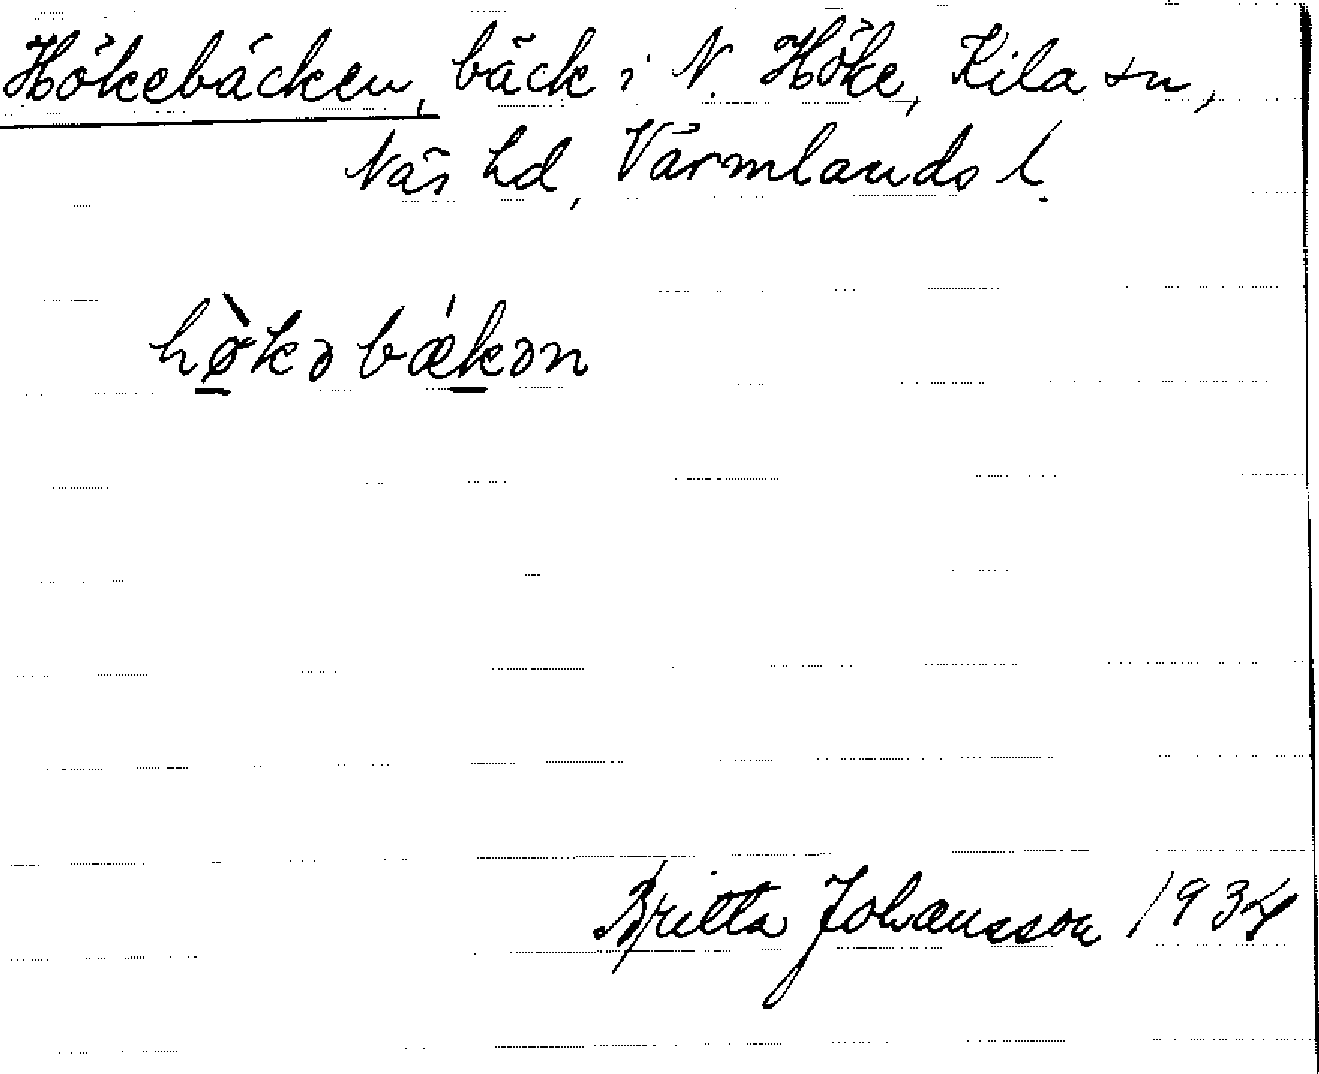 Hökebäcken, bäck i N. Höke, Kila sn,
Näs hd, Värmlands l.
hø̀kəbækən
Britta Johansson 1934